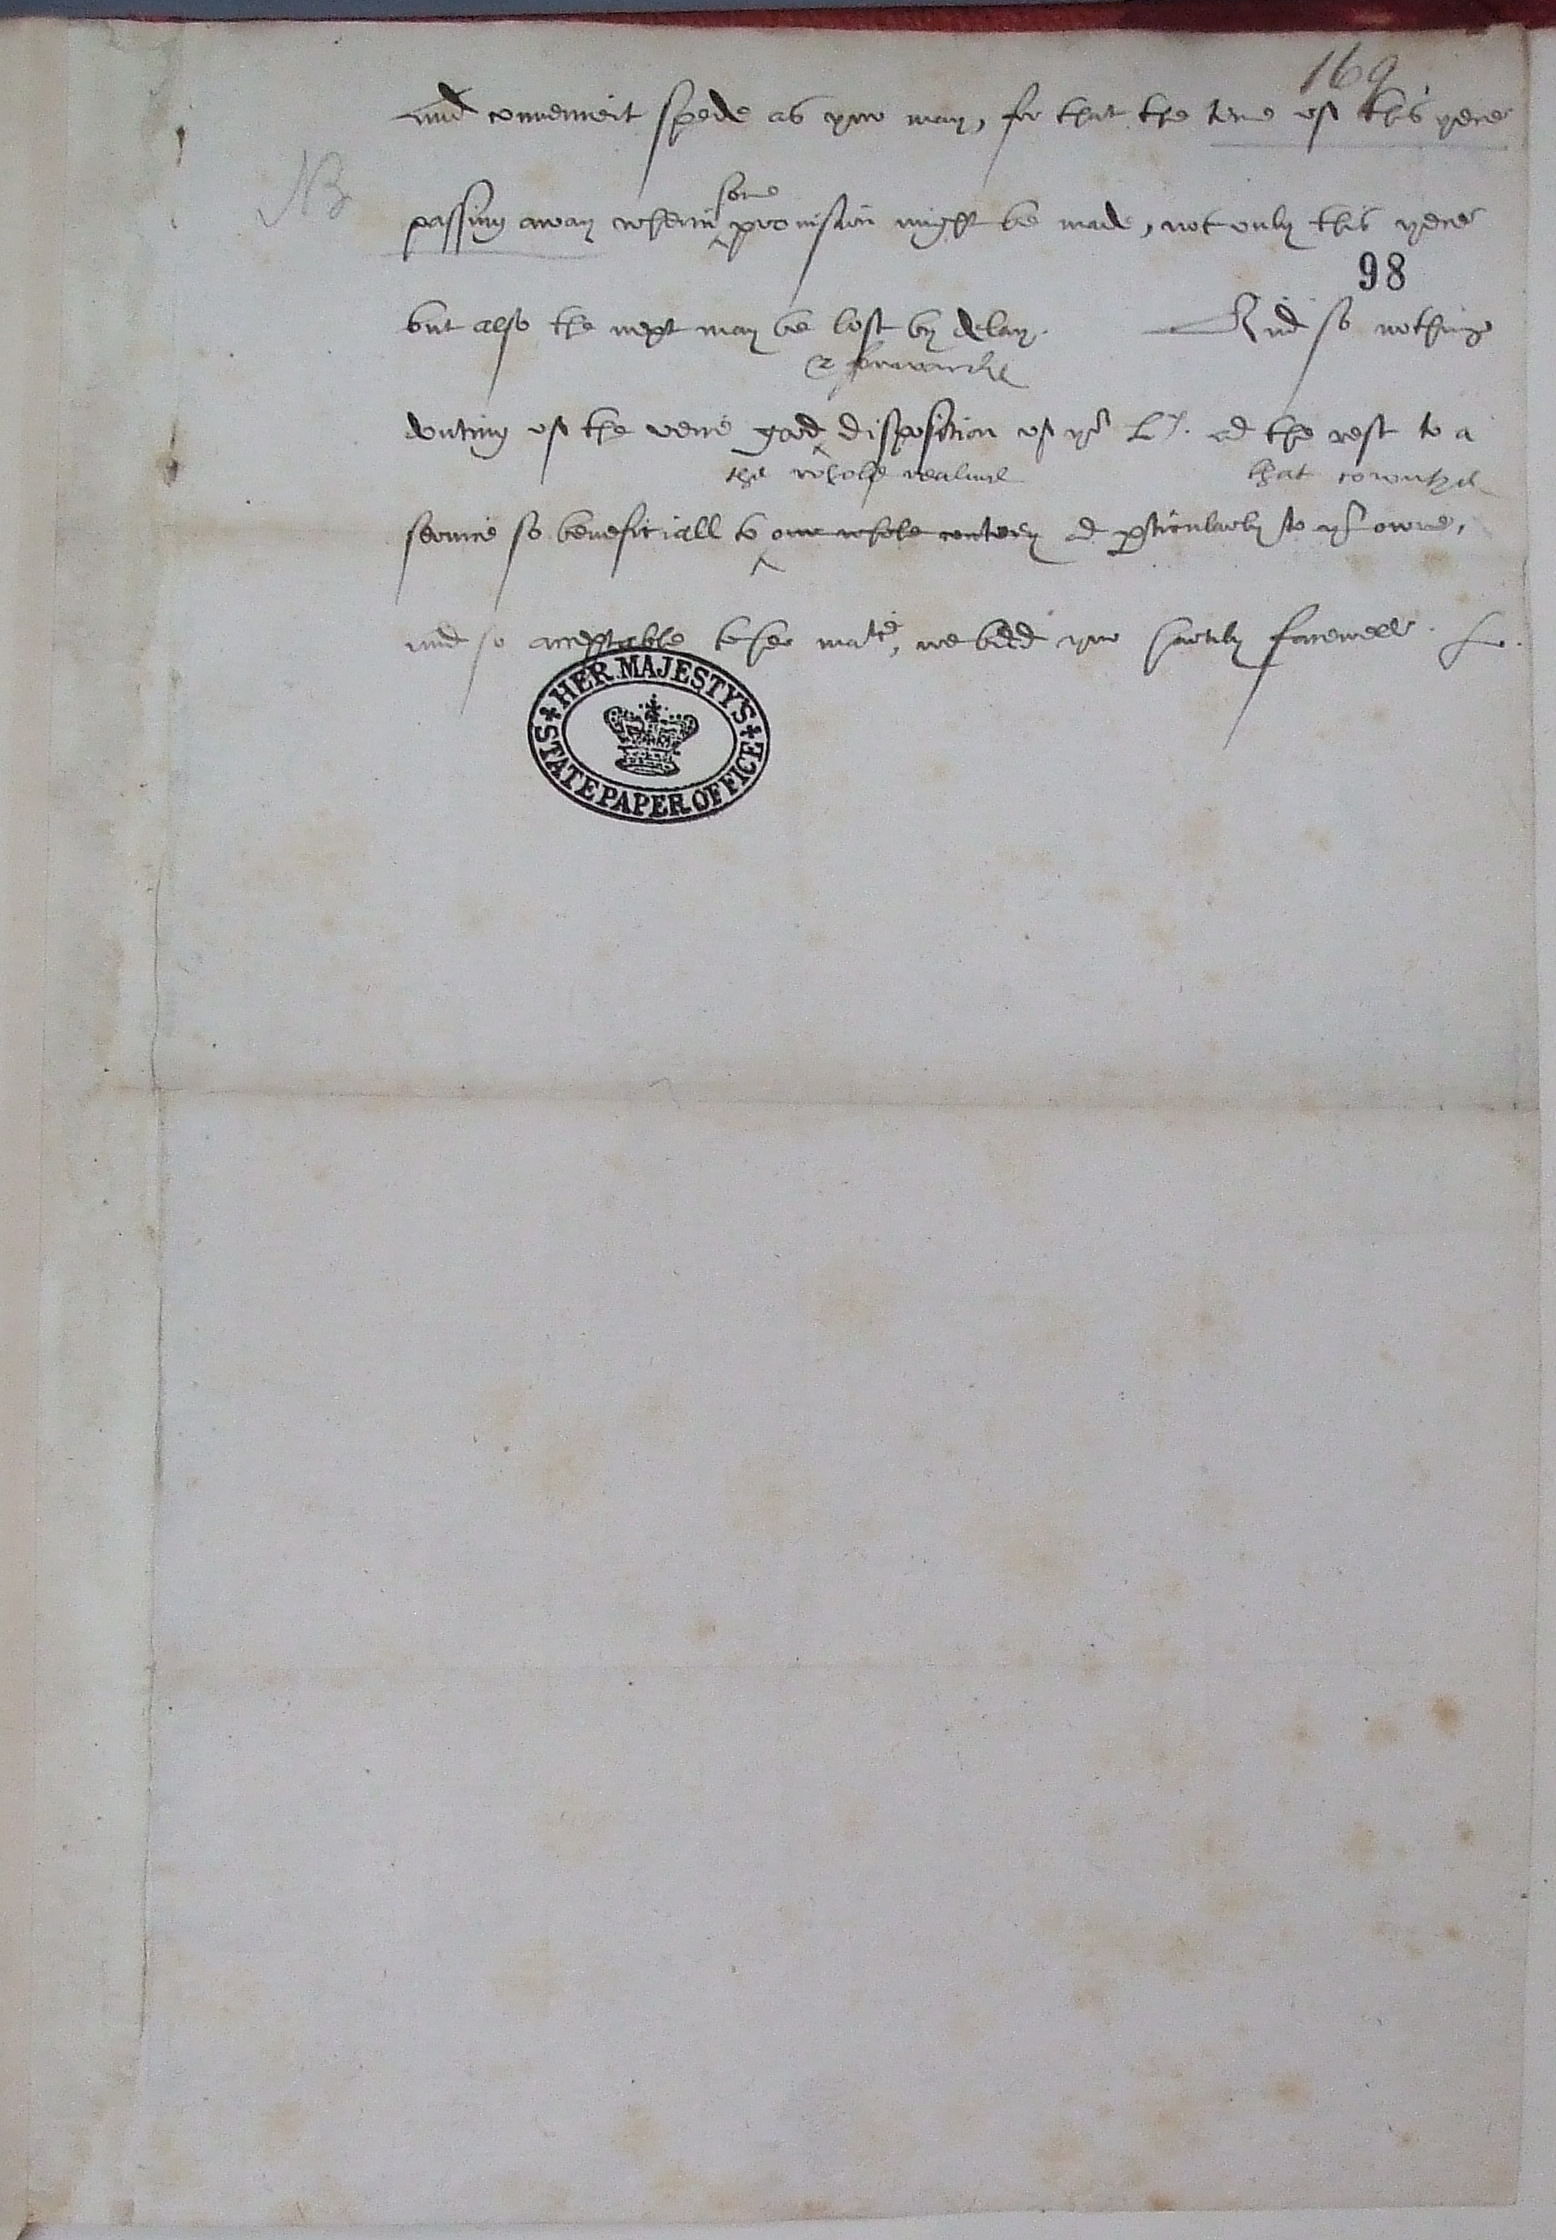 169
and convenient spede as yow may, for that the time of this yere
NB
some
passing away wherin provision might be made, not only this yere
98
but also the next may be lost by delay. And so nothing
& forwardnes
douting of the verie good disposition of yor L. and the rest to a
the whole realme that countye
service so beneficiall to our whole contrey and perticularly to yor owne,
and so acceptable to her matie, we bidd yow hartily farewell.
HER MAJESTY'S
STATE PAPER OFFICE